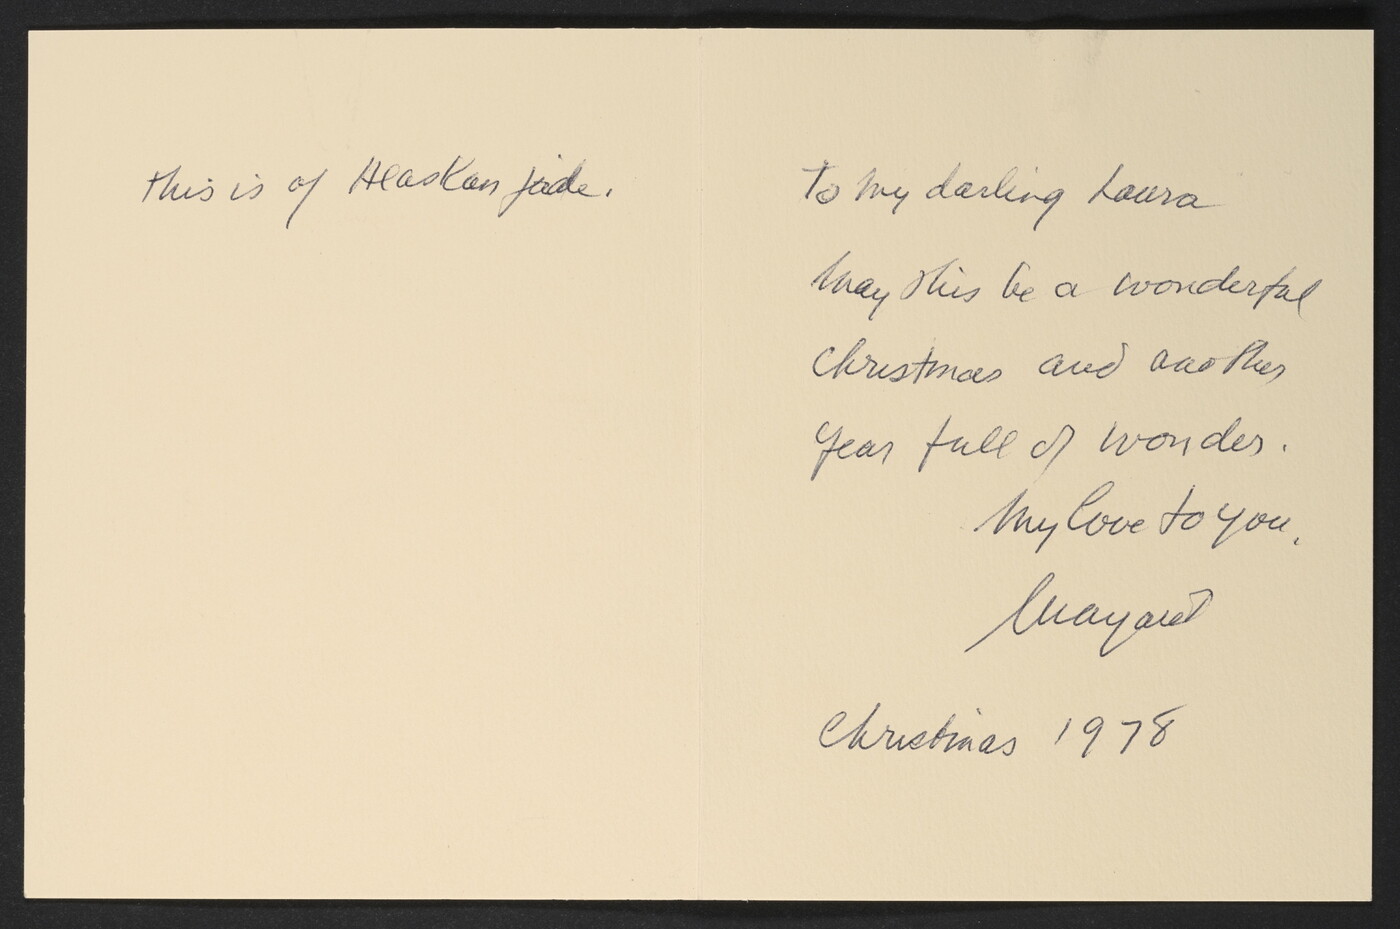 This is of Alaskan jade.
To my darling Laura
May this be a wonderful
Christmas and another
Year full of wonder.
My love to you.
Margaret
Christmas 1978